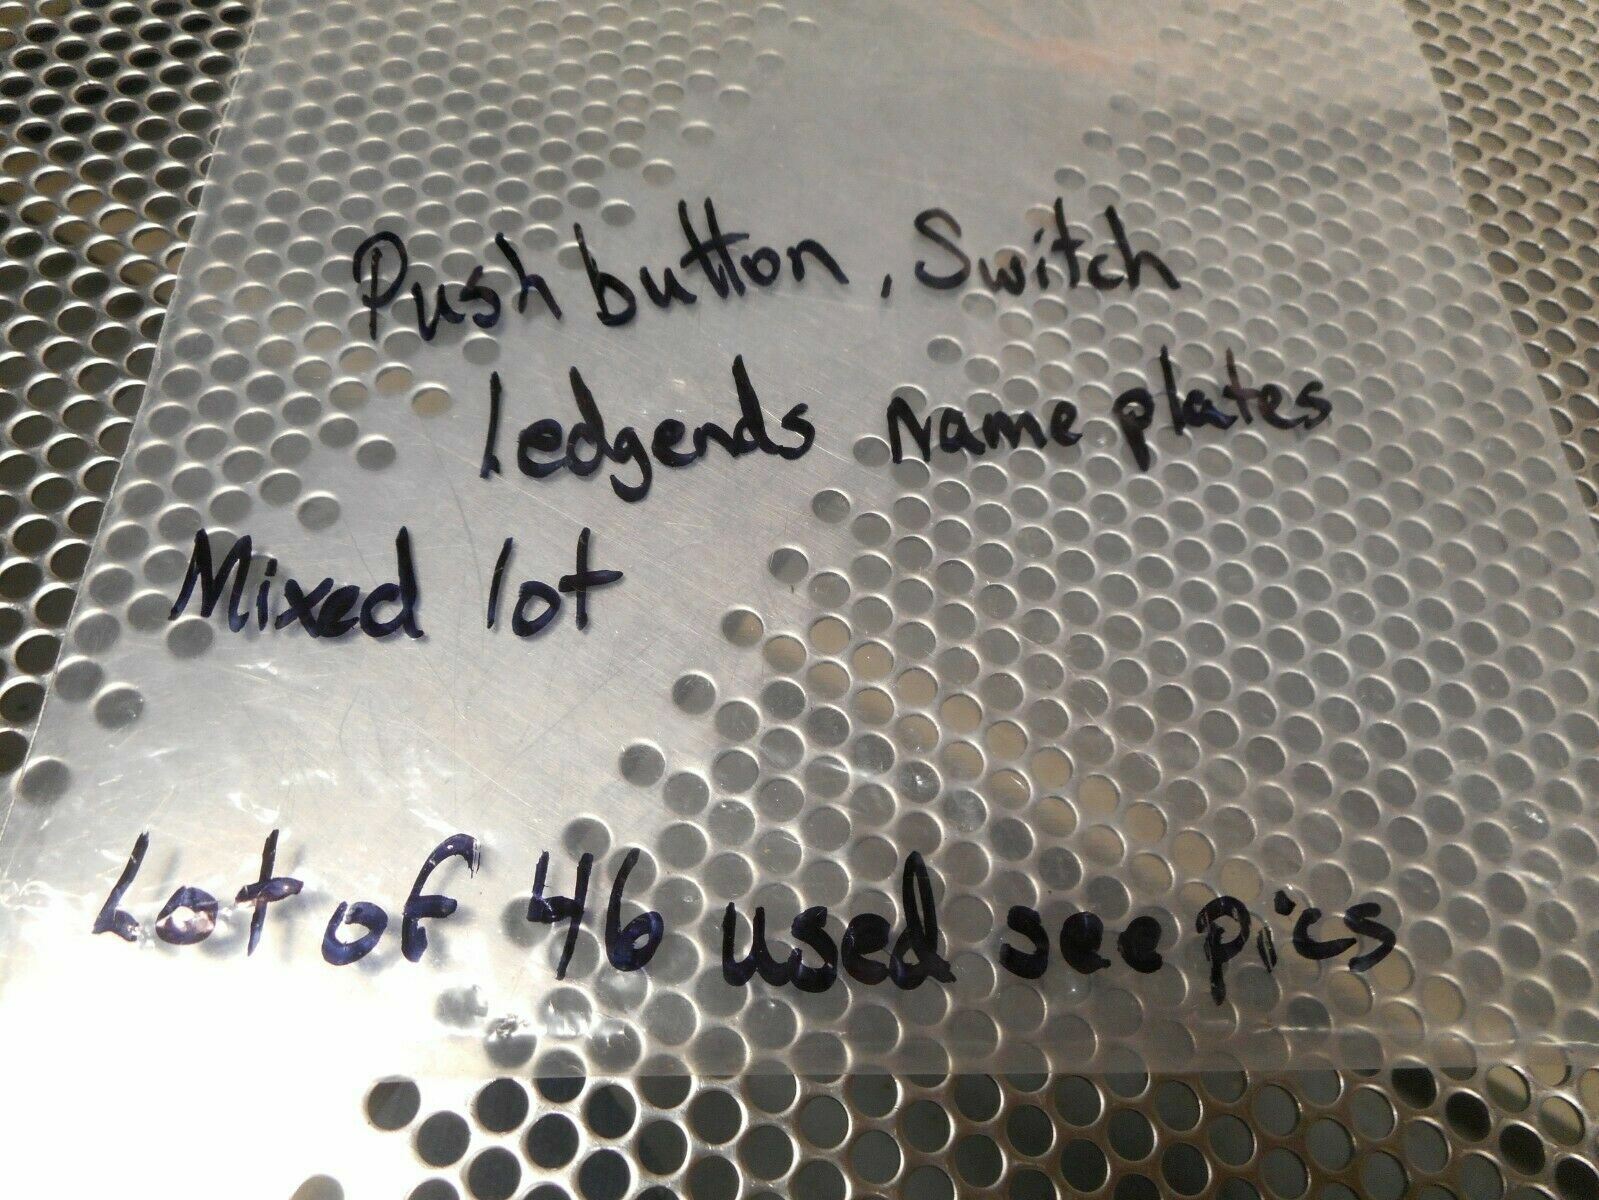 Push button, Switch
ledgends name plates
Mixed lot
Lot of 46 used see pics